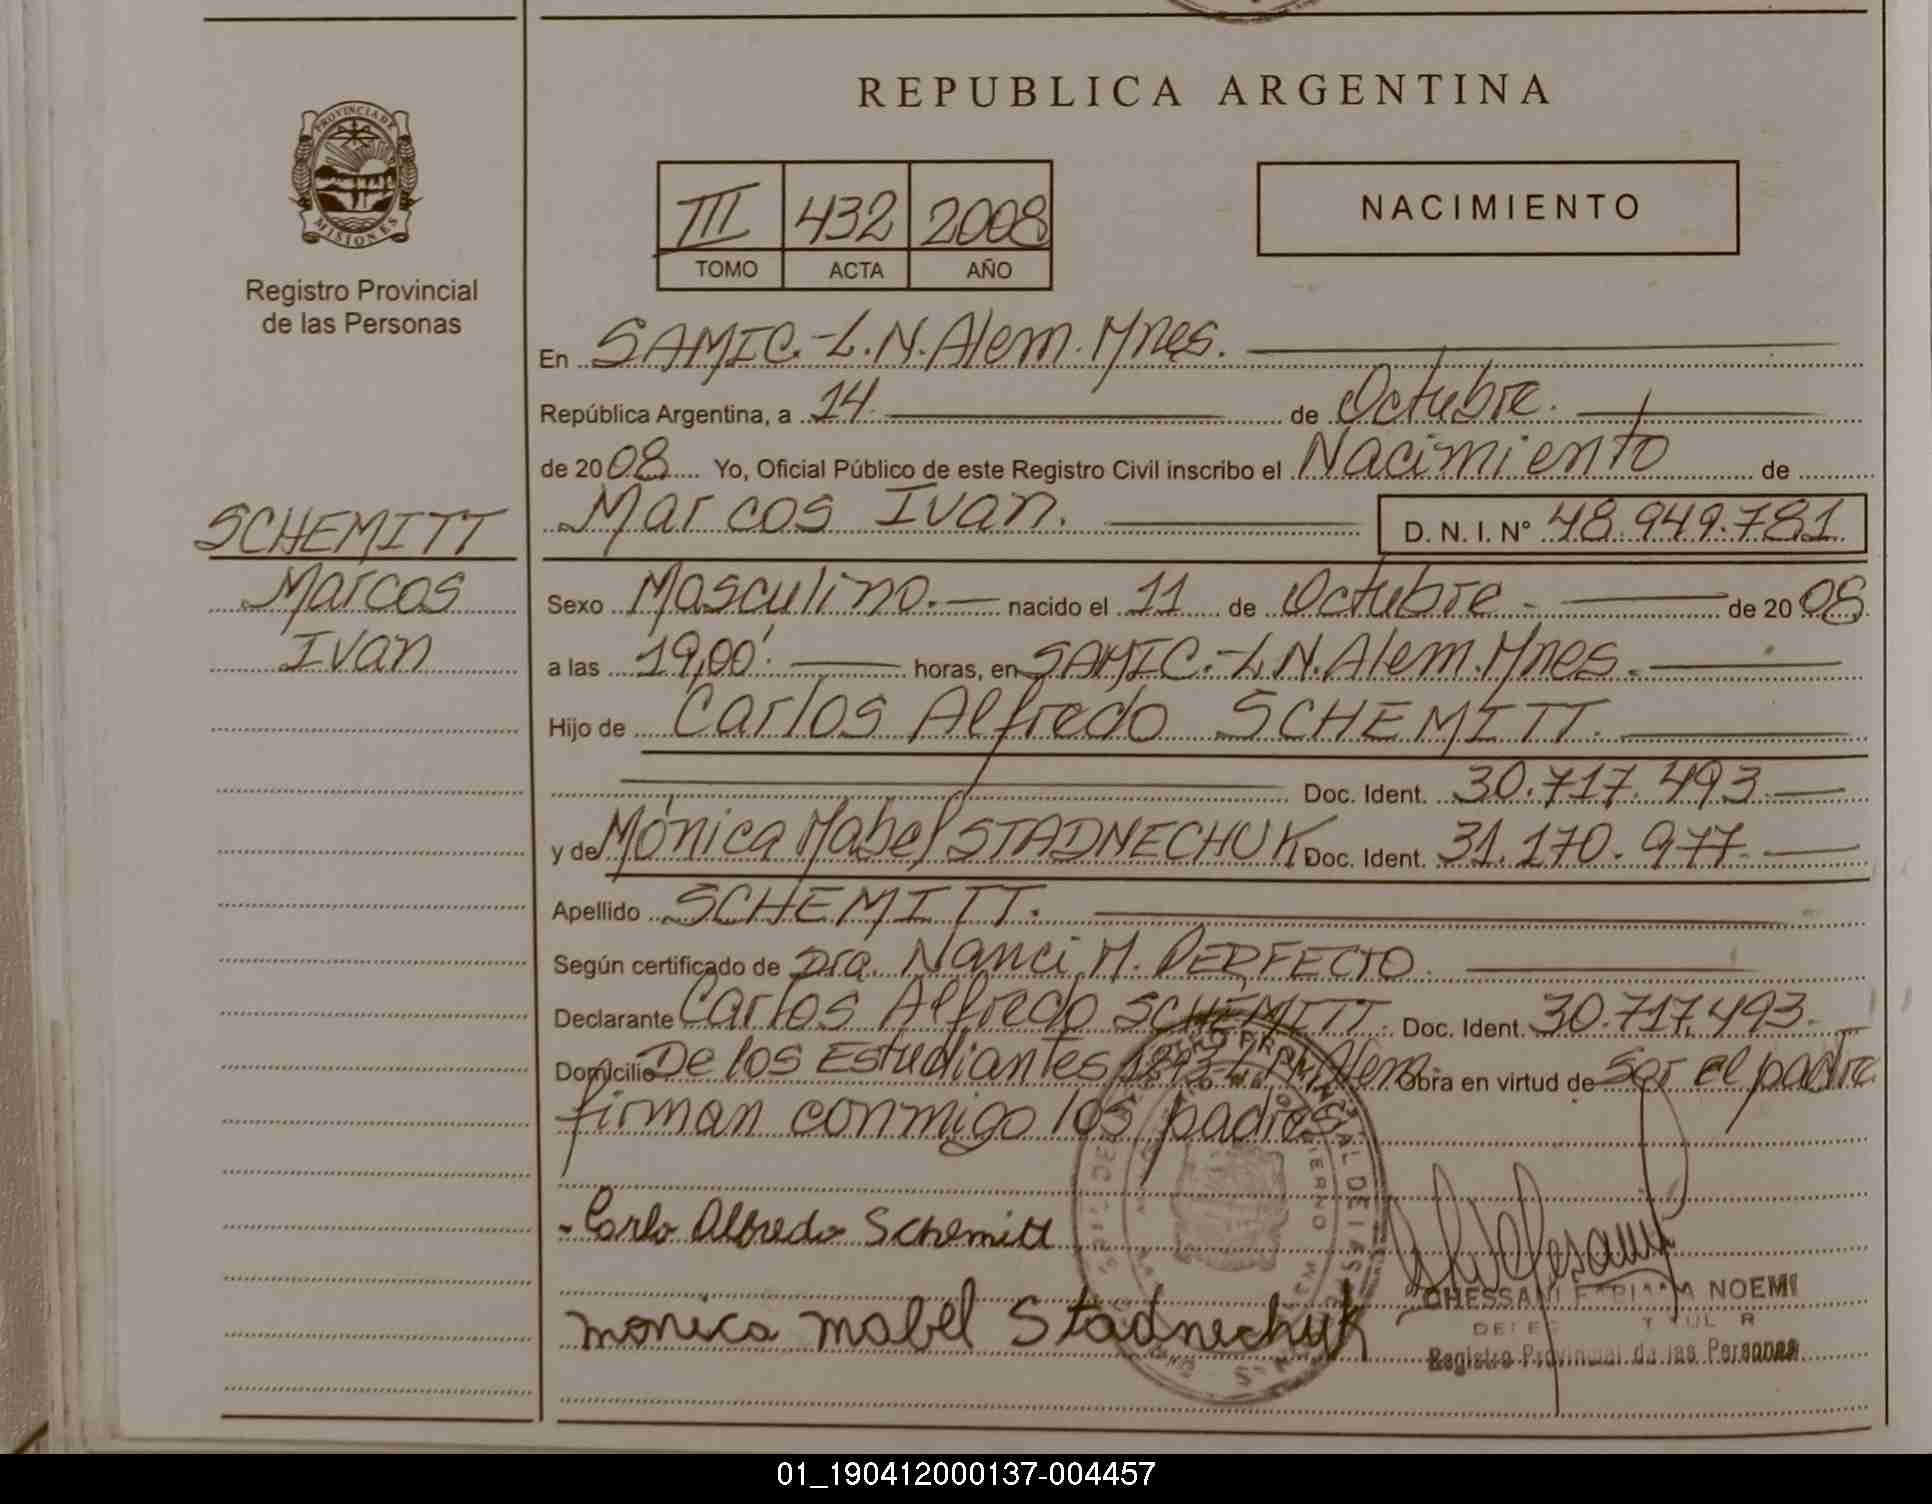 REPUBLICA ARGENTINA
PROVINCIA DE MISIONES
Registro Provincial
de las Personas
III 432 2008
TOMO ACTA AÑO
NACIMIENTO
En SAMIC.-L.N.Alem.Mnes.
República Argentina, a 14. de Octubre.
de 2008 Yo, Oficial Público de este Registro Civil inscribo el Nacimiento de
Marcos Ivan. D. N. I. N° 48.949.781
SCHEMITT
Marcos
Ivan
Sexo Masculino. nacido el 11 de Octubre de 2008
a las 19,00'. horas, en SAMIC.-L.N.Alem.Mnes.
Hijo de Carlos Alfredo SCHEMITT.
Doc. Ident. 30.717.493
y de Mónica Mabel STADNECHUK Doc. Ident. 31.170.977
Apellido SCHEMITT.
Según certificado de Dra. Nanci M. PERFECTO
Declarante Carlos Alfredo SCHEMITT. Doc. Ident. 30.717.493.
Domicilio De los Estudiantes L.N.Alem Obra en virtud de ser el padre
firman conmigo los padres
Carlo Alfredo Schemitt
monica mabel Stadnechuk
GHESSANI FABIANA NOEMI
Registro Provincial de las Personas
01_190412000137-004457